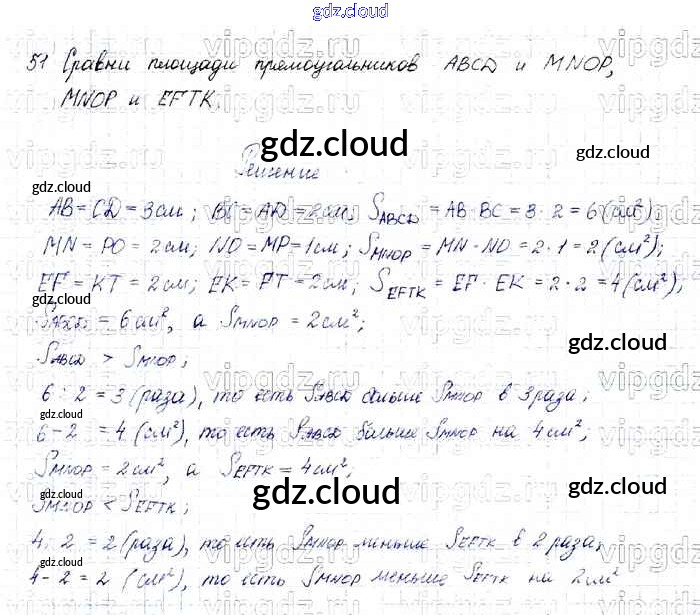 gdz.cloud
51 Сравни площади прямоугольников ABCD и MNOP,
MNOP и EFTK.
gdz.cloud
gdz.cloud
Решение
gdz.cloud
AB = CD = 3 см; BC = AD = 2 см. S ABCD = AB · BC = 3 · 2 = 6 (см²);
MN = PO = 2 см; NO = MP = 1 см; S MNOP = MN · NO = 2 · 1 = 2 (см²);
EF = KT = 2 см; EK = FT = 2 см; S EFTK = EF · EK = 2 · 2 = 4 (см²);
gdz.cloud
S ABCD = 6 см², а S MNOP = 2 см²;
gdz.cloud
S ABCD > S MNOP;
gdz.cloud
6 : 2 = 3 (раза), то есть S ABCD больше S MNOP в 3 раза;
gdz.cloud
6 - 2 = 4 (см²), то есть S ABCD больше S MNOP на 4 см²;
S MNOP = 2 см², а S EFTK = 4 см²;
gdz.cloud
gdz.cloud
gdz.cloud
S MNOP < S EFTK;
4 : 2 = 2 (раза), то есть S MNOP меньше S EFTK в 2 раза;
gdz.cloud
4 - 2 = 2 (см²), то есть S MNOP меньше S EFTK на 2 см²